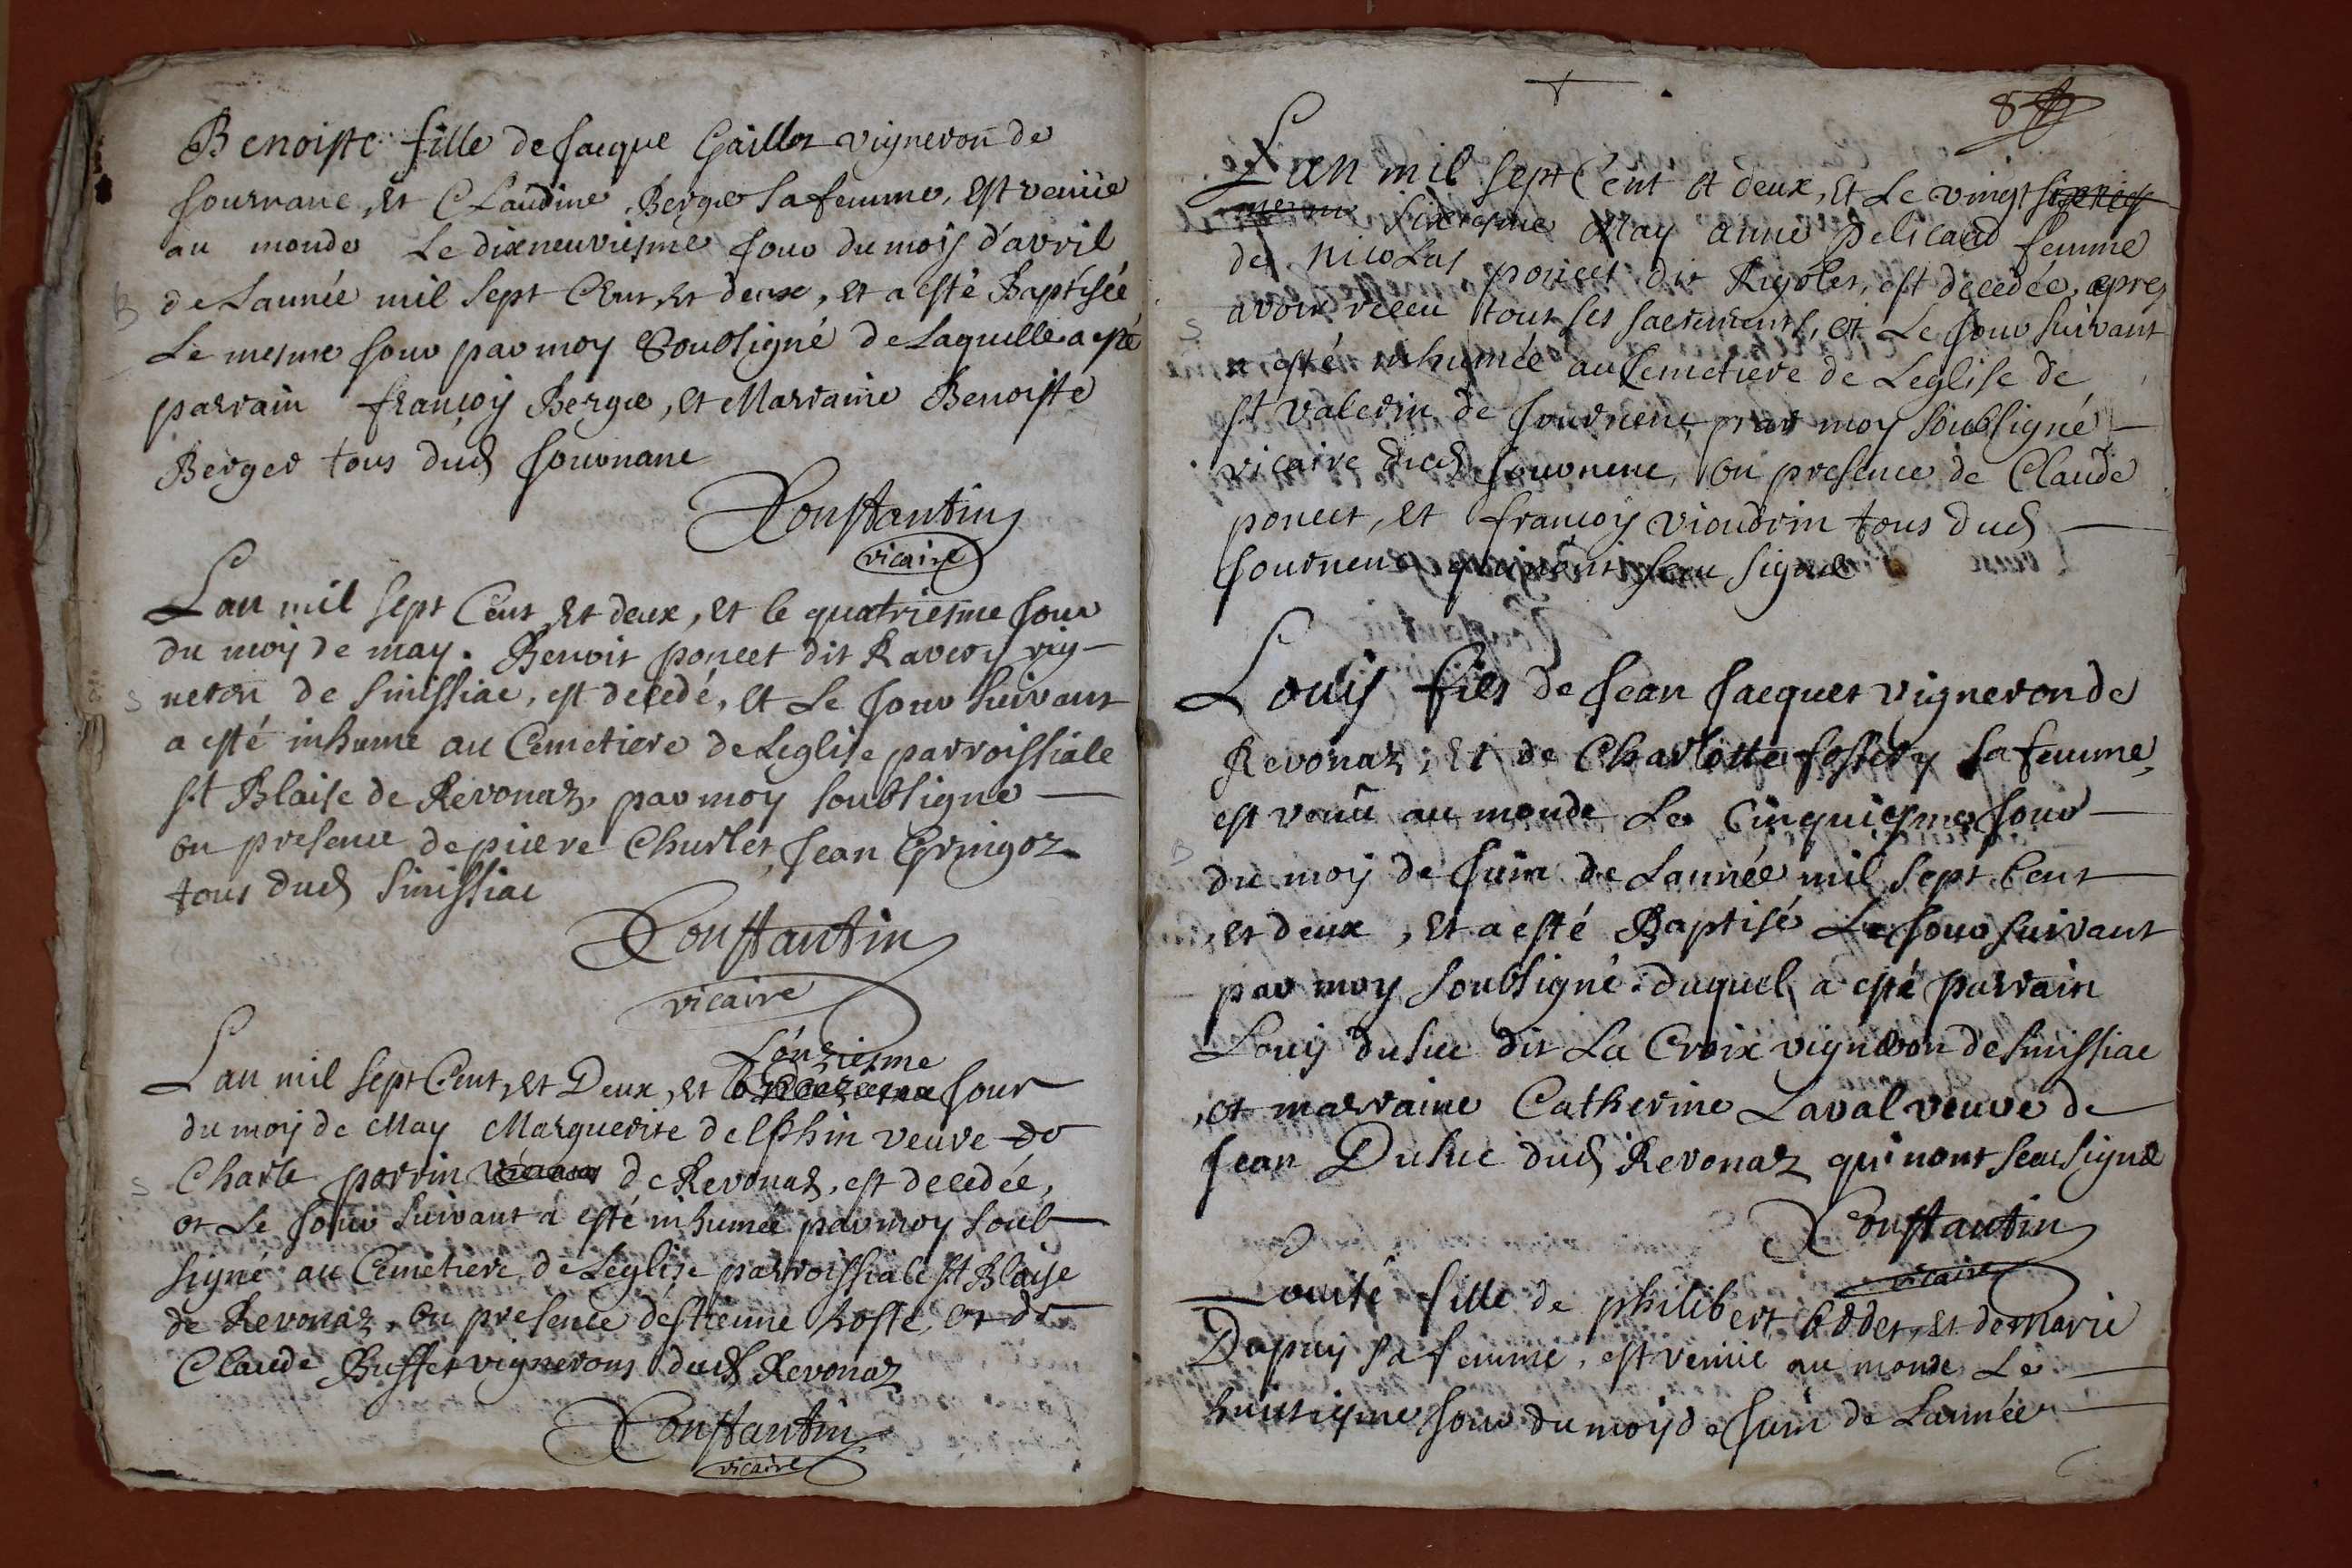 Benoiste fille de Jacque Gaillot vigneron de
Journane, et Claudine Berger sa femme, est venüe
au monde Le dixneuviesme Jour du mois d'avril
de Lannée mil Sept Cent et deux, et a esté Baptisée
Le mesme Jour par moy Soubsigné de Laquelle a esté
parrain françois Berger, et Marraine Benoiste
Berger tous dud Journane
Constantin
vicaire
B
Lan mil sept Cent et deux, et le quatriesme Jour
du mois de may. Benoit poncet dit Ravery vig-
neron de Simissiac, est decedé, et Le Jour suivant
a esté inhumé au Cemetiere de Leglise parroissiale
st Blaise de Revonaz, par moy soubsigné
en presence de pierre Churlet, Jean Gringoz
tous dud Simissiac
Constantin
vicaire
S
Lonziesme
Lan mil sept Cent, et Deux, et Jour
du mois de May Marguerite delphin veuve de
Charle perrin de Revonaz, est decedée,
et Le Jour suivant a esté inhumée par moy soub-
signé au Cemetiere de Leglise parroissiale st Blaise
de Revonaz, en presence d'estienne hoste, et de
Claude Buffet vignerons dud Revonaz
Constantin
vicaire
S
8
Lan mil sept Cent et deux, et Le vingt
sixiesme May anne pelicand femme
de Nicolas poncet dit Rigolet, est decedée, apres
avoir receu tout ses sacrements, et Le Jour suivant
a esté inhumée au Cemetiere de Leglise de
st valerin de Journene, par moy soubsigné
vicaire dud Journene, en presence de Claude
poncet, et françois vioudrin tous dud
Journene qui nont sceu signé
S
Louis fils de Jean Jacquet vigneron de
Revonaz; et de Charlotte fossery sa femme,
est venû au monde Le Cinquiesme Jour
du mois de Juin de Lannée mil sept Cent
et deux, et a esté Baptisé Le Jour suivant
par moy soubsigné duquel a esté parrain
Louis dusuc dit La Croix vigneron de Simissiac
et marraine Catherine Laval veuve de
Jean Dusuc dud Revonaz qui nont sceu signé
Constantin
vicaire
B
Louise fille de philibert Oddet, et de Marie
Dupuis sa femme, est venüe au monde Le
huictiesme Jour du mois de Juin de Lannée